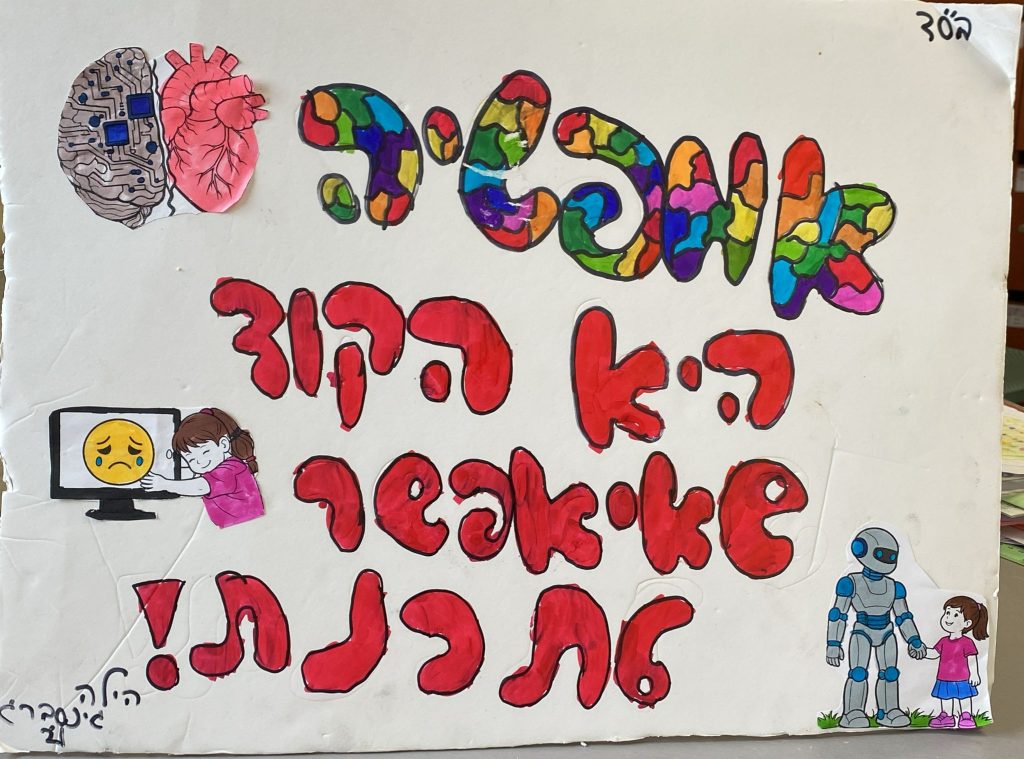 בס"ד
אמפטיה
היא הקוד
שאי אפשר
לתכנת!
הילה
גינסברג